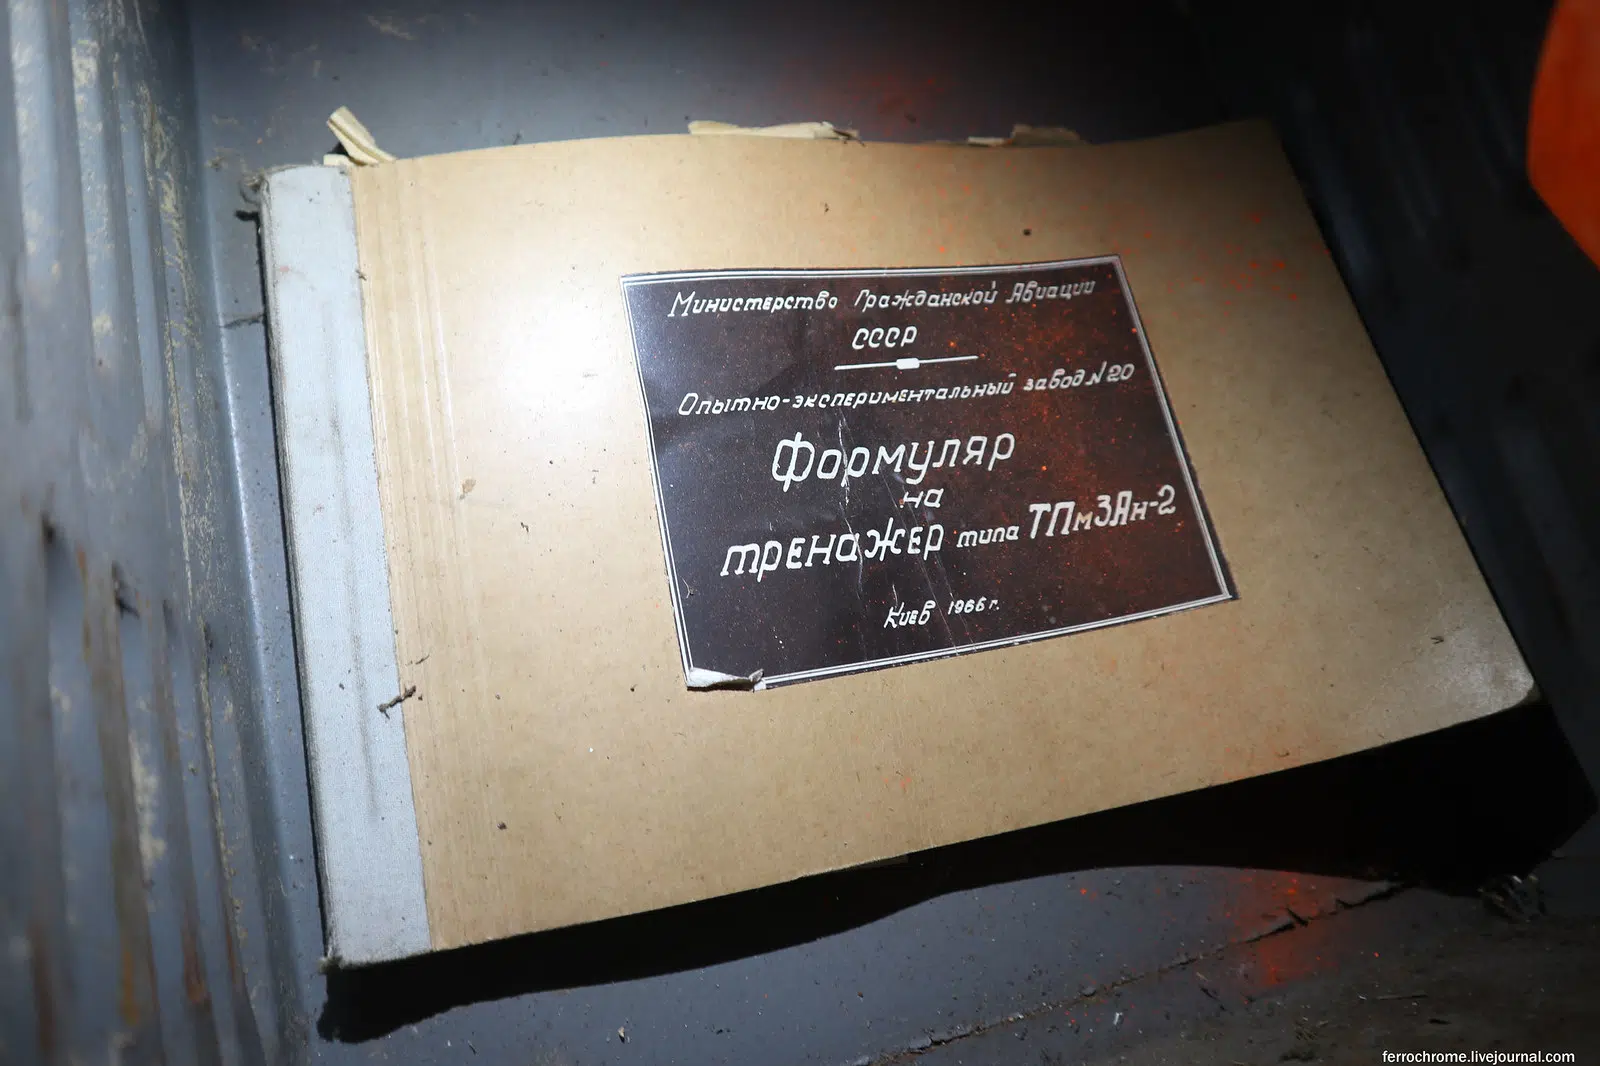 Министерство Гражданской Авиации
СССР
Опытно-экспериментальный завод №20
Формуляр
на
тренажер типа ТПмЗАн-2
Киев 1966 г.
ferrochrome.livejournal.com